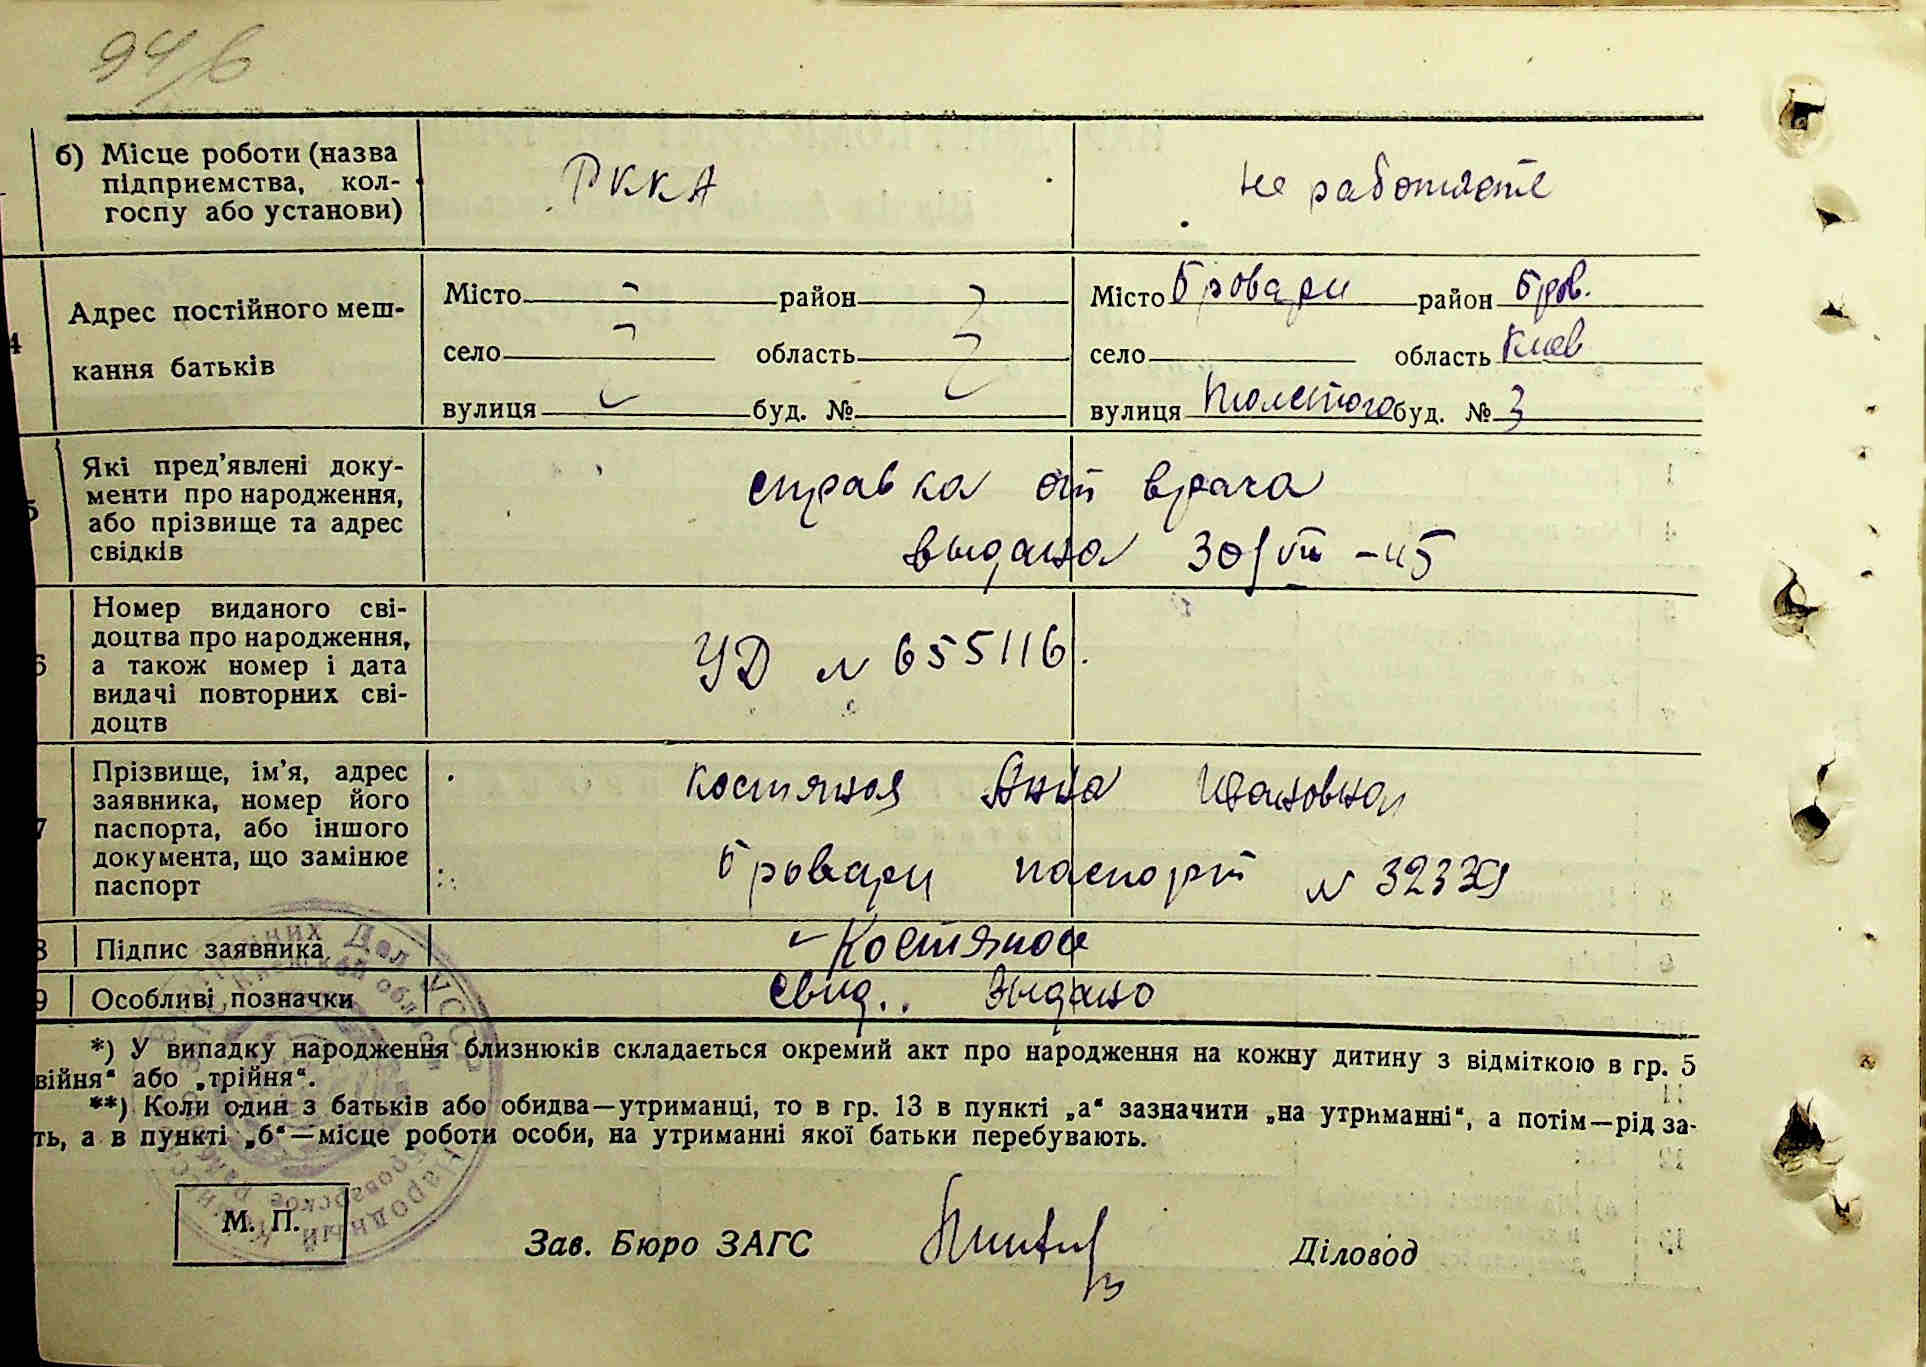 94/б
б) Місце роботи (назва
підприємства, кол-
госпу або установи)
РККА
не работает
4
Адрес постійного меш-
кання батьків
Місто район
село область
вулиця буд. №
Місто Бровари район Бров.
село область Киев
вулиця Толстого буд. № 3
5
Які пред’явлені доку-
менти про народження,
або прізвище та адрес
свідків
справка от врача
выдана 30/VII -45
6
Номер виданого сві-
доцтва про народження,
а також номер і дата
видачі повторних сві-
доцтв
УД № 655116.
7
Прізвище, ім’я, адрес
заявника, номер його
паспорта, або іншого
документа, що замінює
паспорт
Костяная Анна Ивановна
Бровари паспорт №
8 Підпис заявника
Костяноя
9 Особливі позначки
Свид.. Выдано
*) У випадку народження близнюків складається окремий акт про народження на кожну дитину з відміткою в гр. 5
війня“ або „трійня“.
**) Коли один з батьків або обидва—утриманці, то в гр. 13 в пункті „а“ зазначити „на утриманні“, а потім—рід за-
ть, а в пункті „б“—місце роботи особи, на утриманні якої батьки перебувають.
М. П.
Зав. Бюро ЗАГС
Діловод